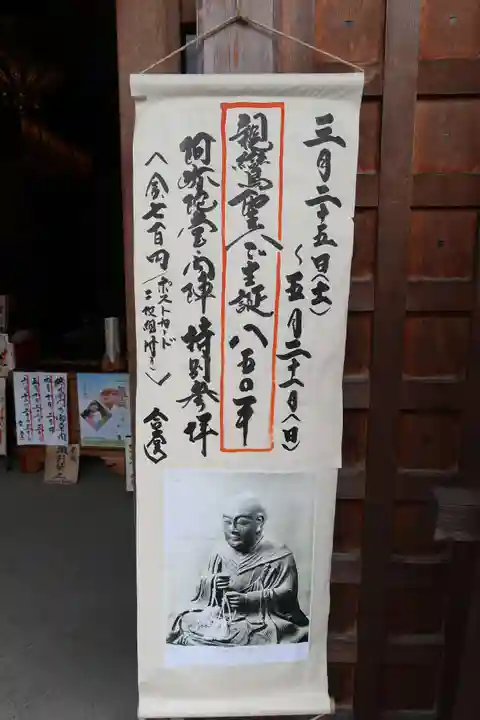 三月二十五日(土)
〜五月二十一日(日)
親鸞聖人ご生誕八五〇年
阿弥陀堂内陣 特別参拝
(金七百円(ポストカード
二枚組付き)
合掌